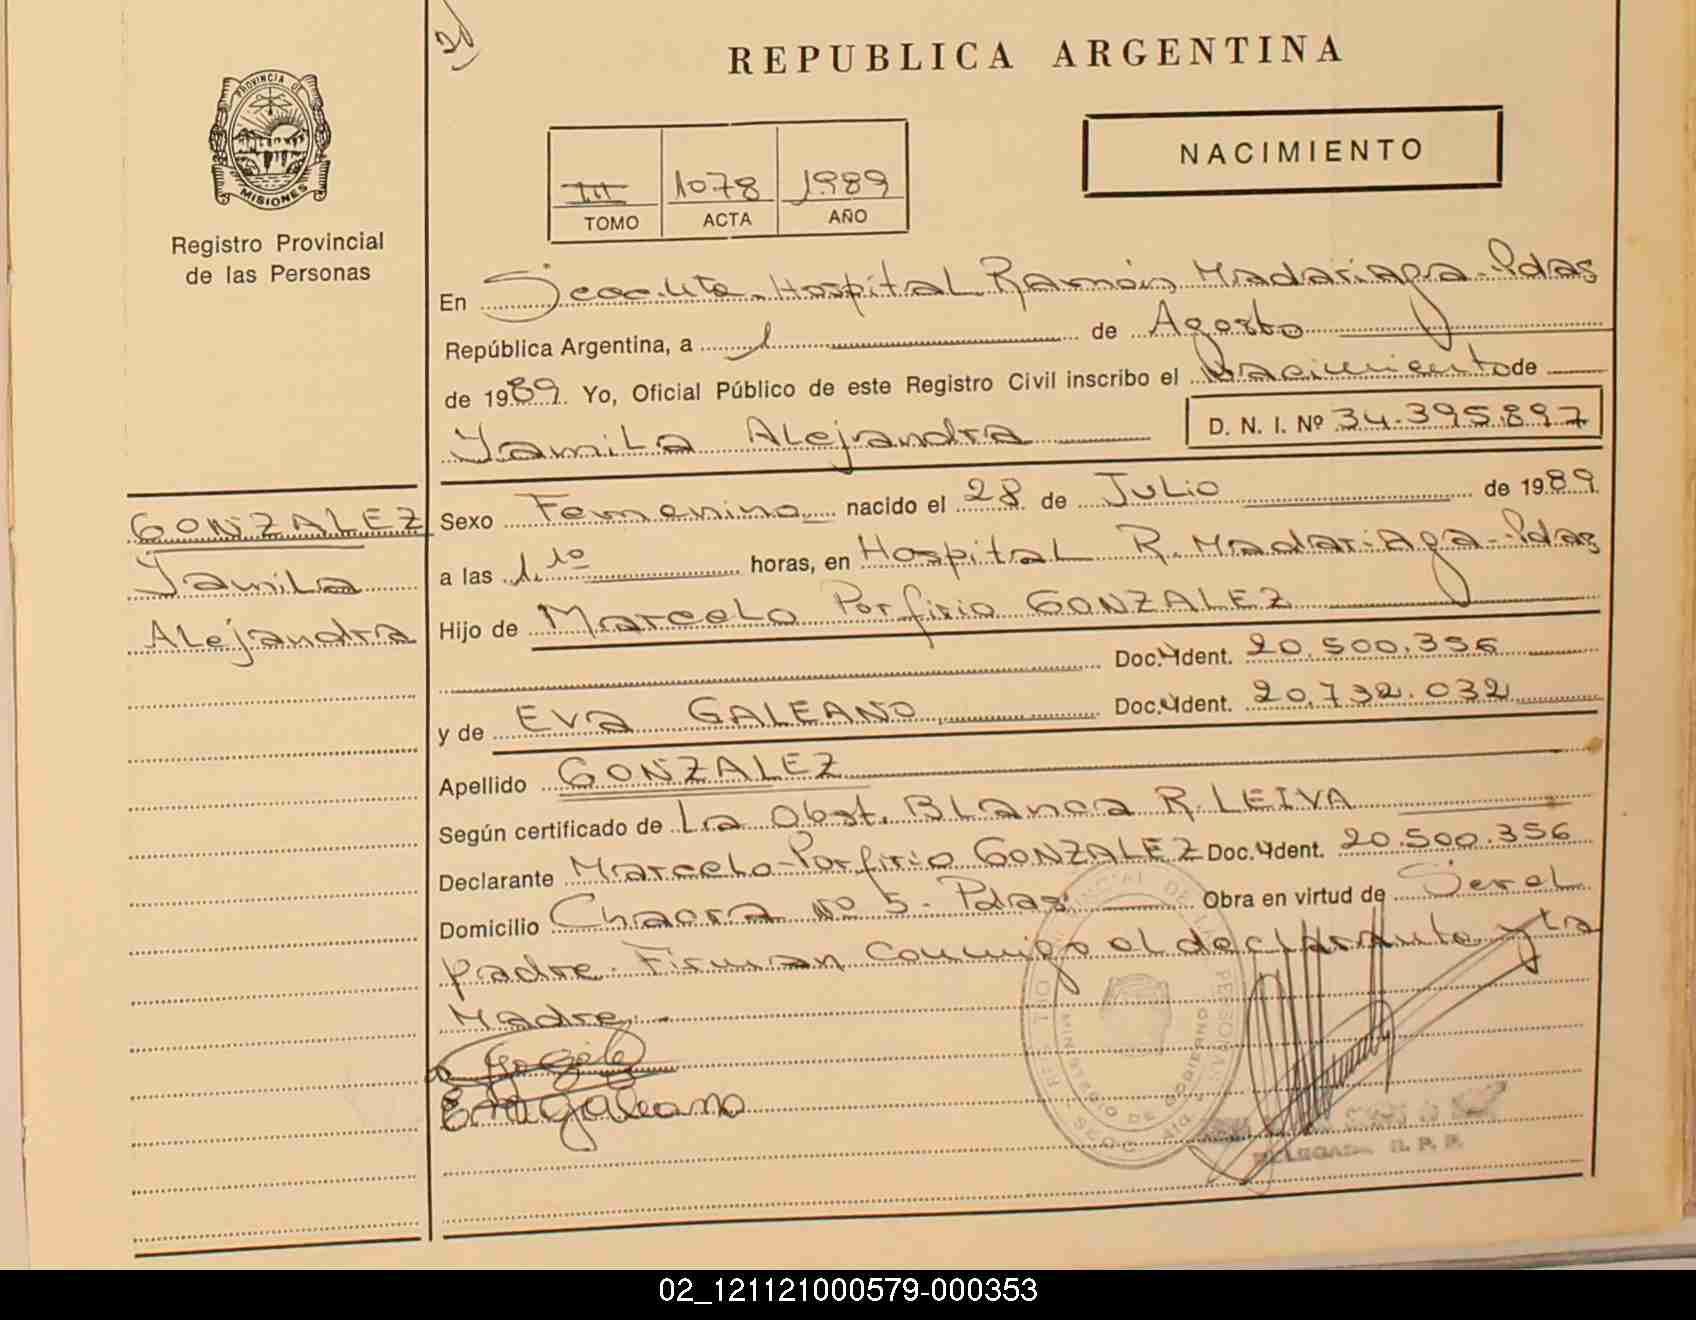 REPUBLICA ARGENTINA
PROVINCIA DE
MISIONES
Registro Provincial
de las Personas
III 1078 1989
TOMO ACTA AÑO
NACIMIENTO
En Secc. Hospital Ramón Madariaga - Pdas
República Argentina, a 1 de Agosto
de 1989. Yo, Oficial Público de este Registro Civil inscribo el Nacimiento de
Yamila Alejandra D. N. I. Nº 34.395.897
GONZALEZ
Yamila
Alejandra
Sexo Femenino nacido el 28 de Julio de 1989
a las 1.10 horas, en Hospital R. Madariaga - Pdas
Hijo de Marcelo Porfirio GONZALEZ
Doc. Ident. 20.500.356
y de EVA GALEANO Doc. Ident. 20.732.032
Apellido GONZALEZ
Según certificado de La Obst. Blanca R. LEIVA
Declarante Marcelo Porfirio GONZALEZ Doc. Ident. 20.500.356
Domicilio Chacra Nº 5 - Pdas Obra en virtud de Ser el
padre. Firman conmigo el declarante y la
Madre.-
Eva galeano
MINISTERIO DE GOBIERNO
R. P. P.
02_121121000579-000353